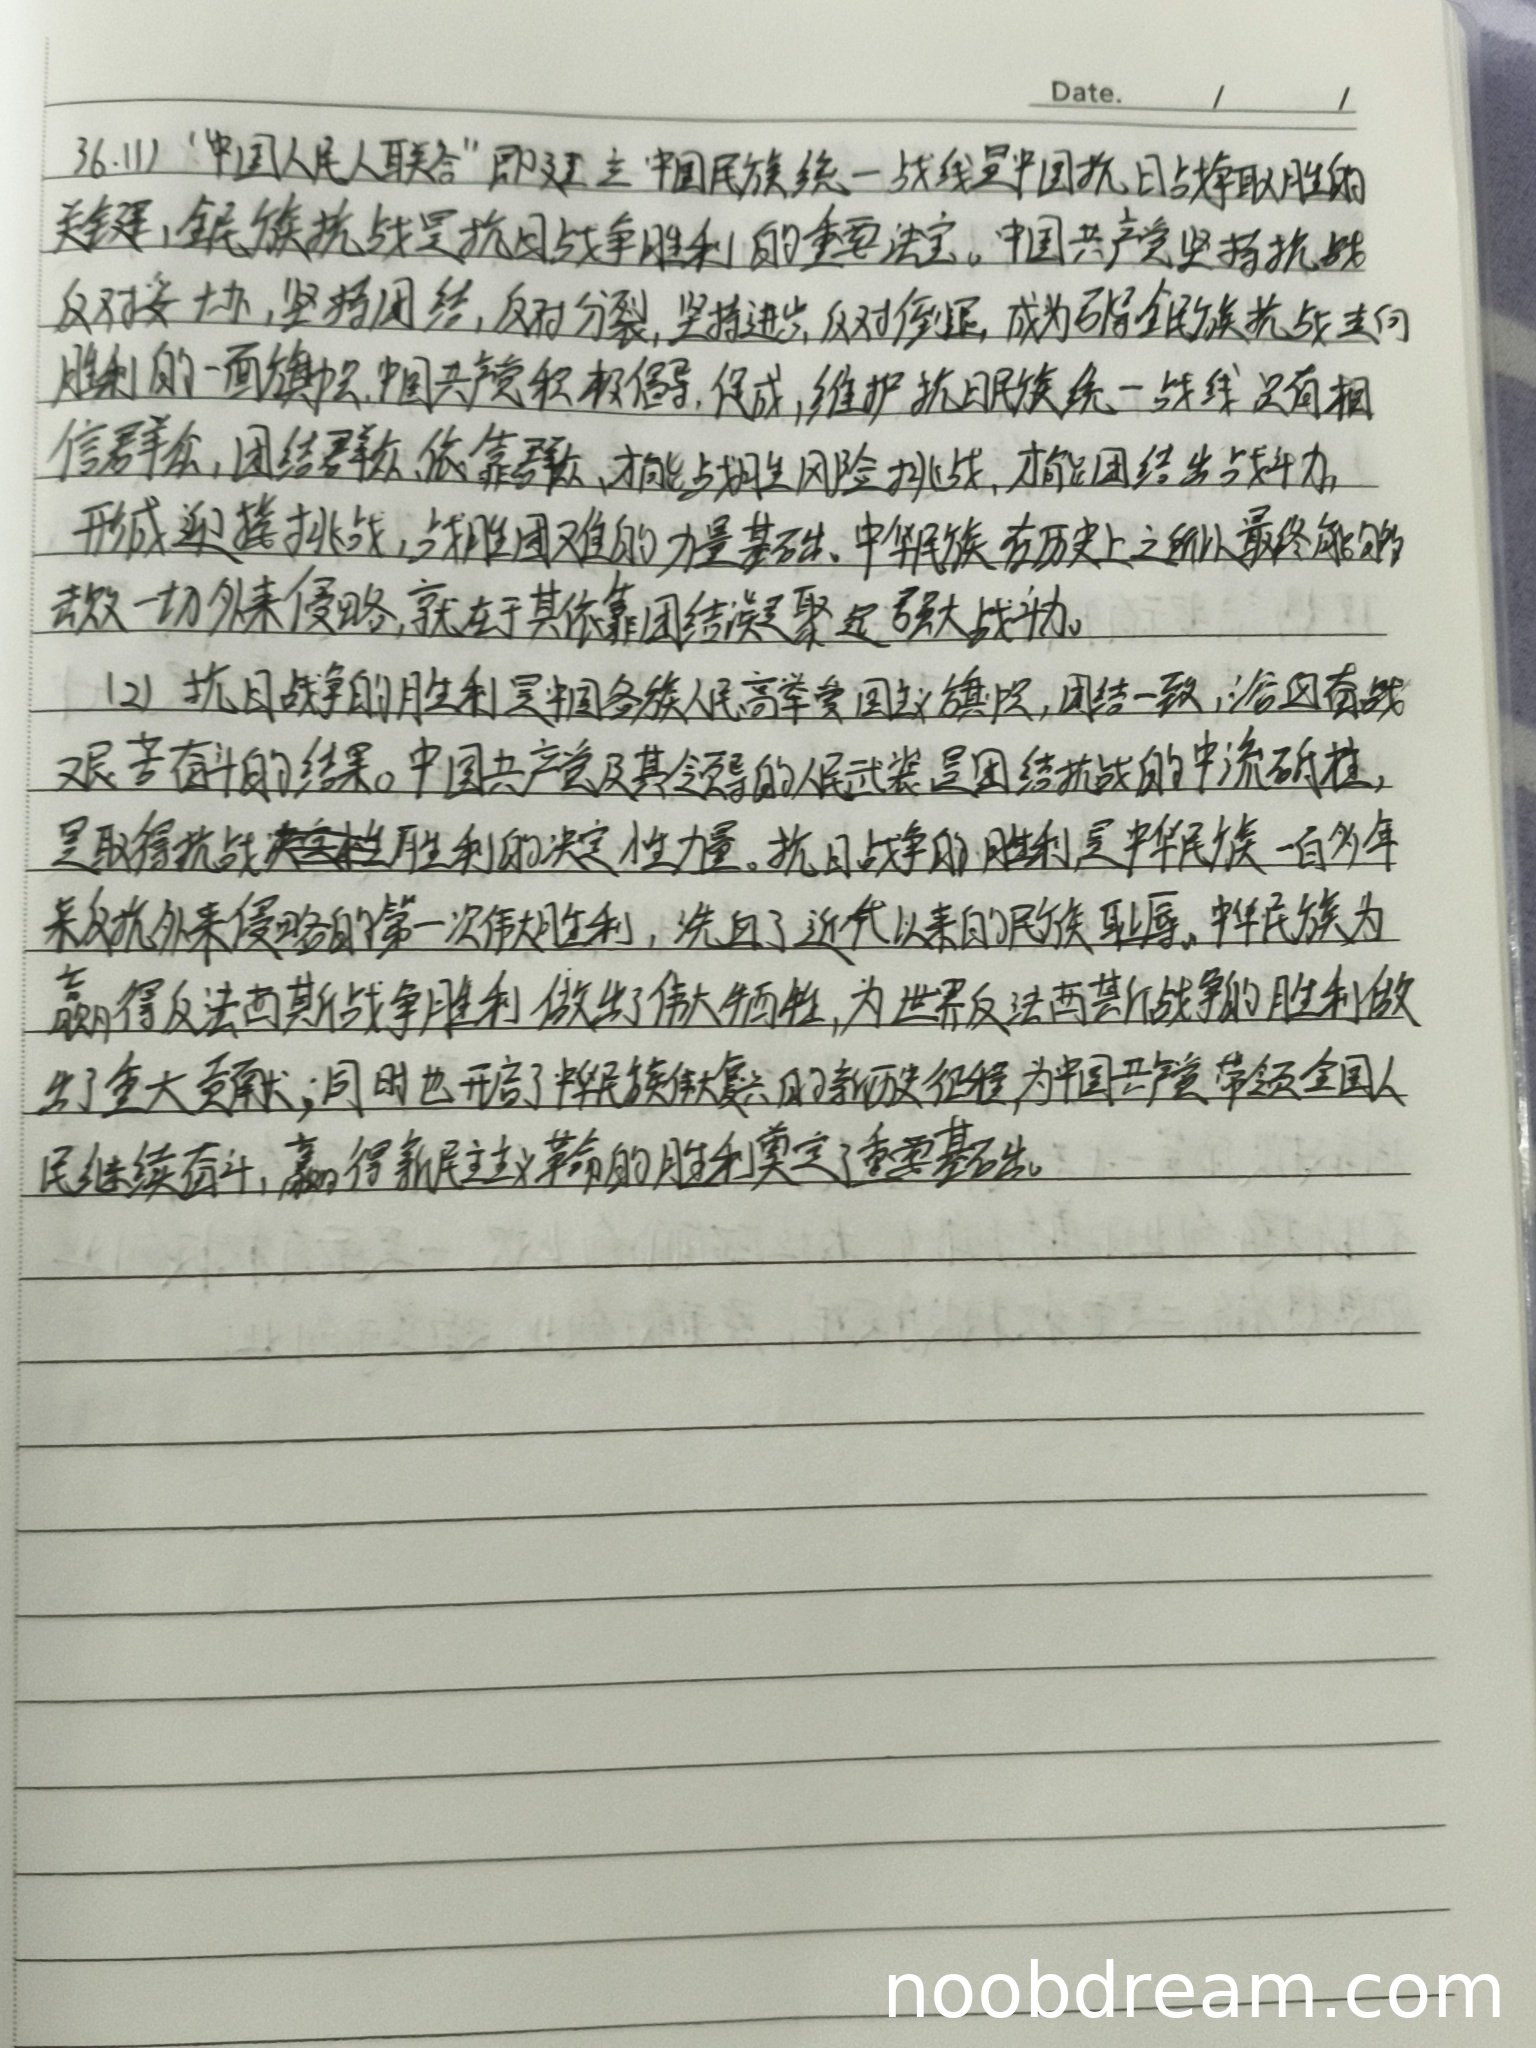 Date. / /
36.(1) "中国人民大联合"即建立中国民族统一战线是中国抗日战争取胜的
关键,全民族抗战是抗日战争胜利的重要法宝。中国共产党坚持抗战
反对妥协,坚持团结,反对分裂,坚持进步,反对倒退,成为引导全民族抗战走向
胜利的一面旗帜.中国共产党积极倡导.促成,维护抗日民族统一战线 只有相
信群众,团结群众、依靠群众、才能战胜风险挑战、才能团结出战斗力,
形成迎接挑战,战胜困难的力量基础、中华民族在历史上之所以最终能够
击败一切外来侵略,就在于其依靠团结凝聚起强大战斗力。
(2) 抗日战争的胜利是中国各族人民高举爱国主义旗帜,团结一致,浴血奋战
艰苦奋斗的结果。中国共产党及其领导的人民武装是团结抗战的中流砥柱,
是取得抗战胜利的决定性力量。抗日战争的胜利是中华民族一百多年
来反抗外来侵略的第一次伟大胜利,洗血了近代以来的民族耻辱。中华民族为
赢得反法西斯战争胜利做出了伟大牺牲,为世界反法西斯战争的胜利做
出了重大贡献;同时也开启了中华民族伟大复兴的新历史征程,为中国共产党带领全国人
民继续奋斗,赢得新民主主义革命的胜利奠定了重要基础。
noobdream.com